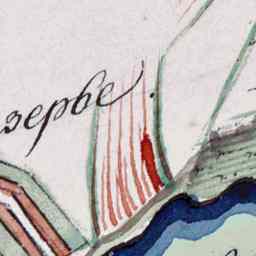 зерве.